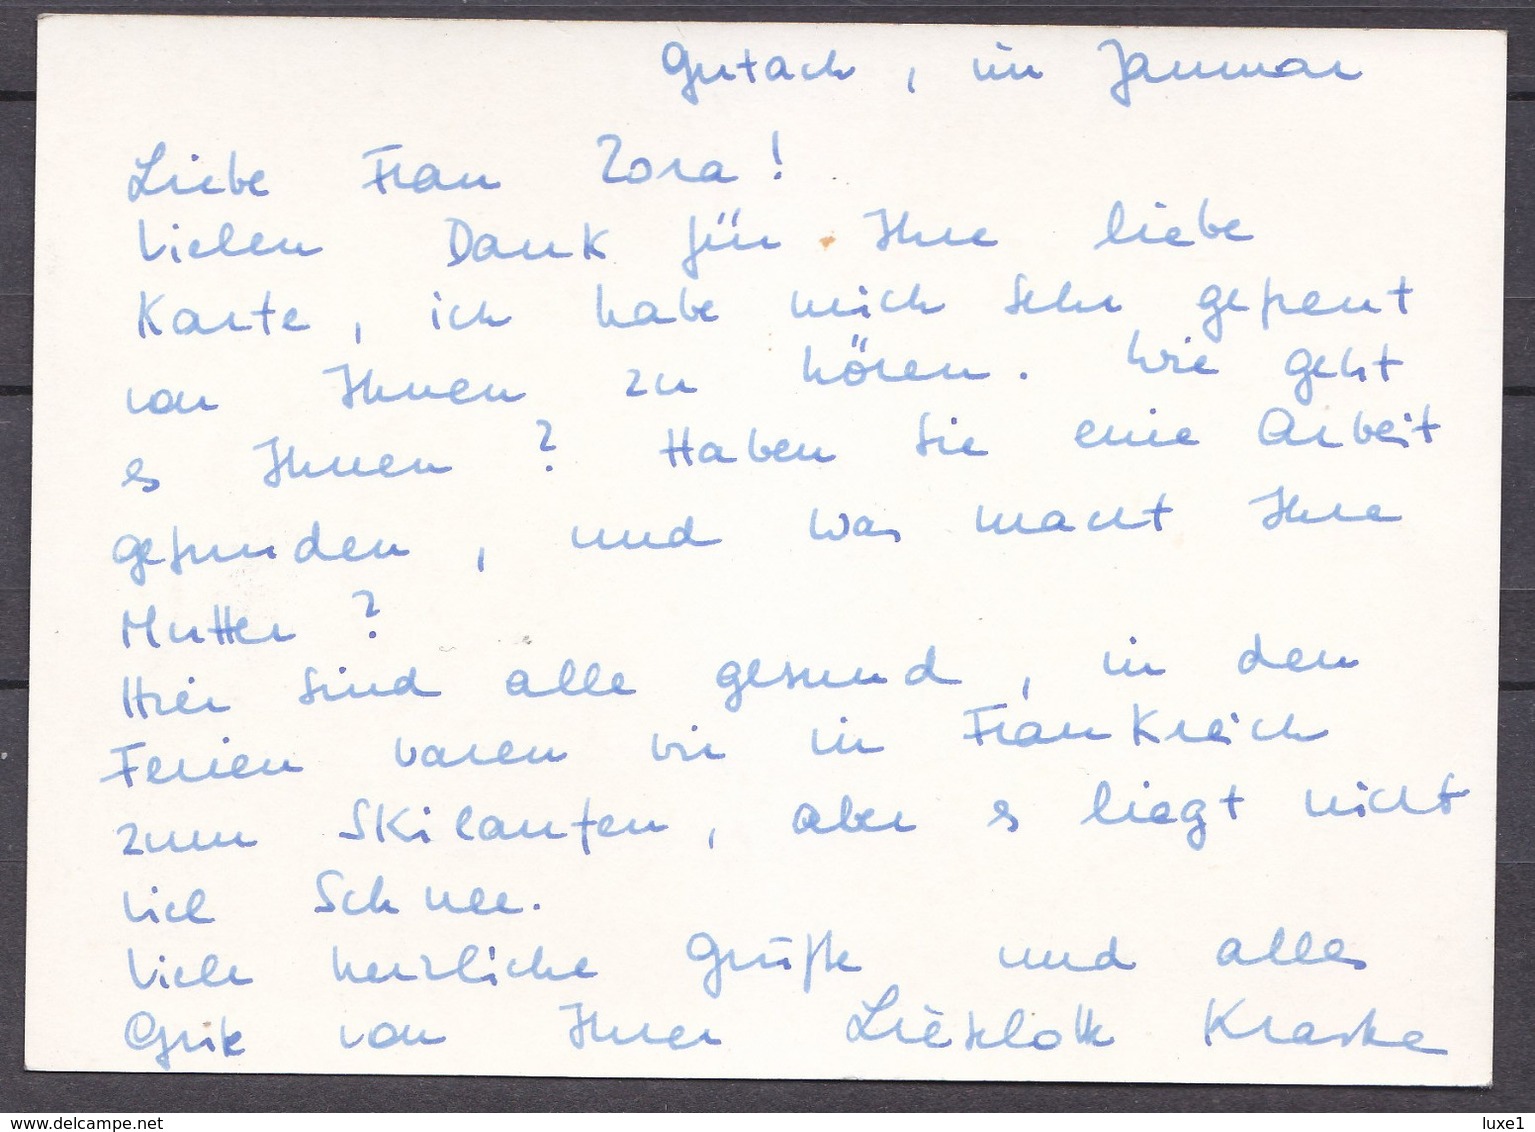 Gutach, im Januar
Liebe Frau Zora!
Vielen Dank für Ihre liebe
Karte, ich habe mich sehr gefreut
von Ihnen zu hören. Wie geht
es Ihnen? Haben Sie eine Arbeit
gefunden, und was macht Ihre
Mutter?
Hier sind alle gesund, in den
Ferien waren wir in Frankreich
zum Skilaufen, aber es liegt nicht
viel Schnee.
Viele herzliche Grüße und alles
Gute von Ihrer Lieselotte Kraske
www.delcampe.net
luxe1